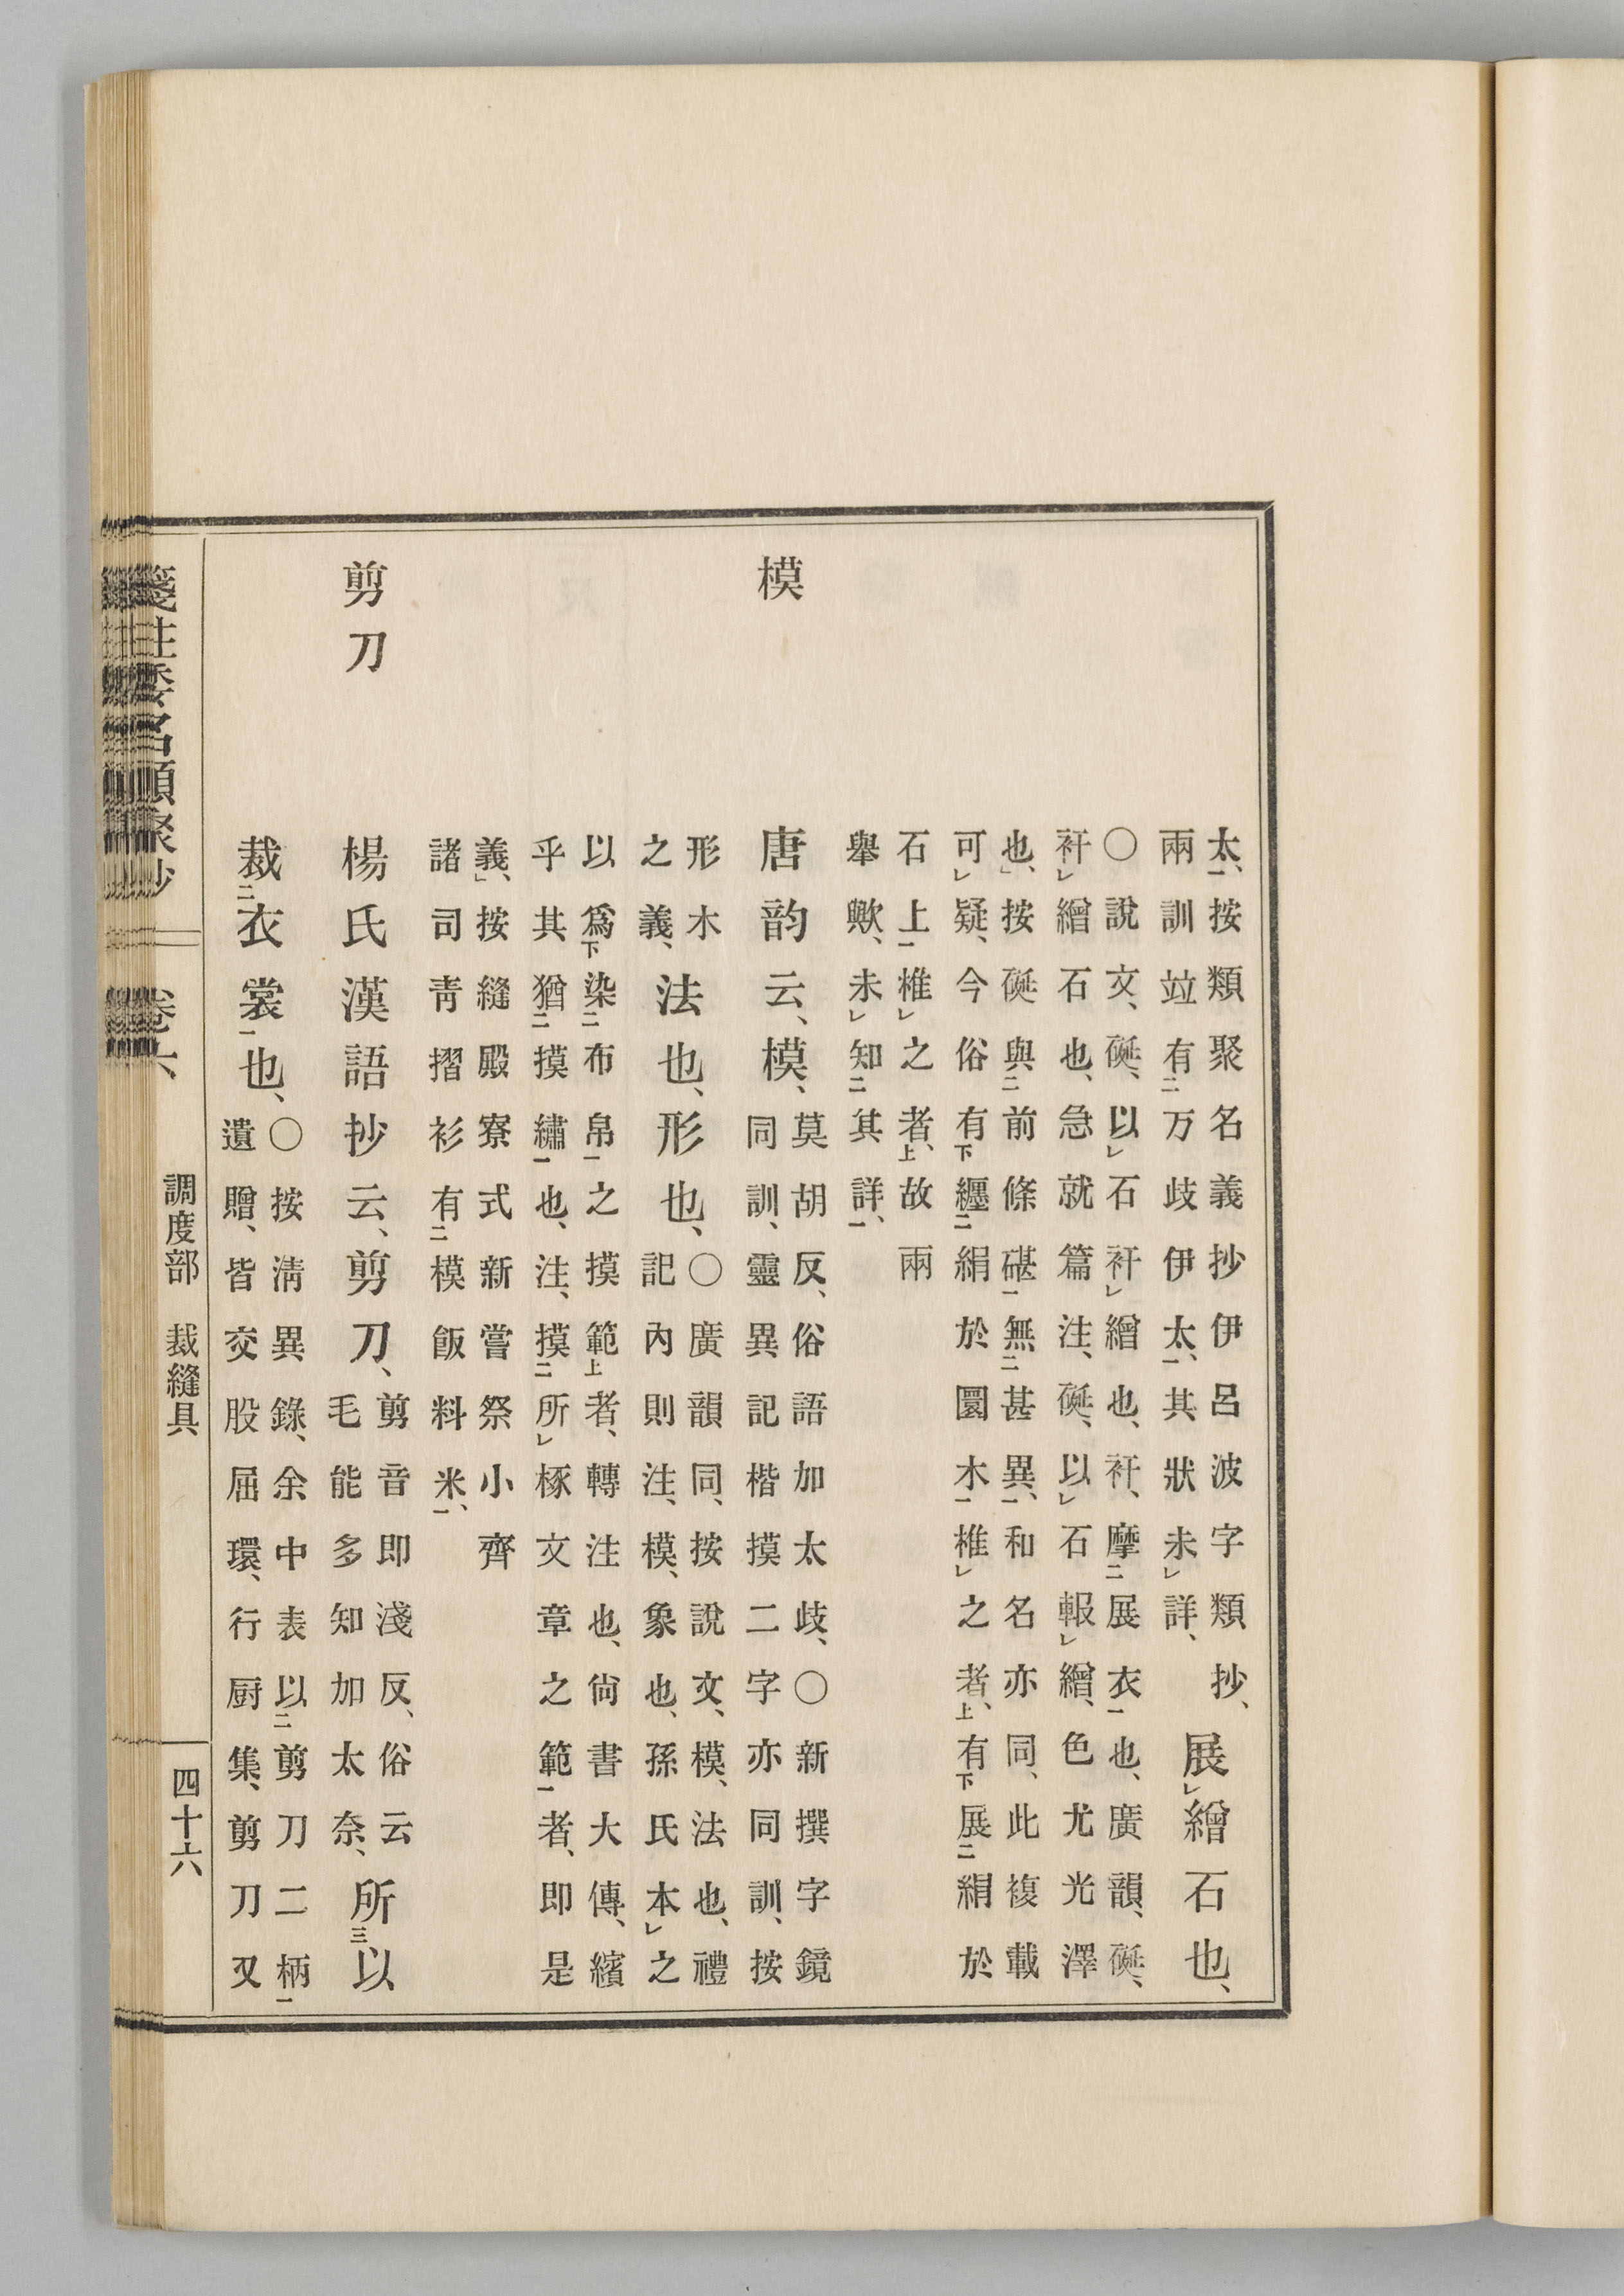 太、按類聚名義抄伊呂波字類抄、
兩訓竝有万歧伊太、其狀未詳、
展繒石也、
○說文、硟、以石衦繒也、衦、摩展衣也、廣韻、硟、
衦繒石也、急就篇注、硟、以石報繒、色尤光澤
也、按硟與前條碪無甚異、和名亦同、此複載
可疑、今俗有纒絹於圜木椎之者、有展絹於
石上椎之者、故兩
擧歟、未知其詳、
模
唐韵云、模、
莫胡反、俗語加太歧、○新撰字鏡
同訓、靈異記楷摸二字亦同訓、按
形木
之義、
法也、形也、
○廣韻同、按說文、模、法也、禮
記內則注、模、象也、孫氏本之
以爲染布帛之摸範者、轉注也、尙書大傳、繽
乎其猶摸繡也、注、摸所椓文章之範者、卽是
義、按縫殿寮式新嘗祭小齊
諸司靑摺衫有模飯料米、
剪刀
楊氏漢語抄云、剪刀、
剪音卽淺反、俗云
毛能多知加太奈、
所以
裁衣裳也、
○按淸異錄、余中表以剪刀二柄
遺贈、皆交股屈環、行厨集、剪刀又
箋註倭名類聚抄
卷六
調度部 裁縫具
四十六